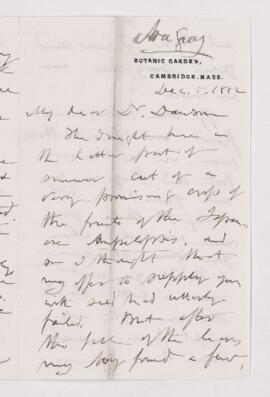 Asa Gray
BOTANIC GARDEN,
CAMBRIDGE, MASS.
Dec. 5, 1882
My dear Dr. Dawson
The drought here in
the latter part of
summer cut off a
very promising crop of
the fruits of the Japan-
ese Ampelopsis, and
so I thought that
my offer to supply you
with seed had utterly
failed. But after
the fall of the leaves
my boy found a few,